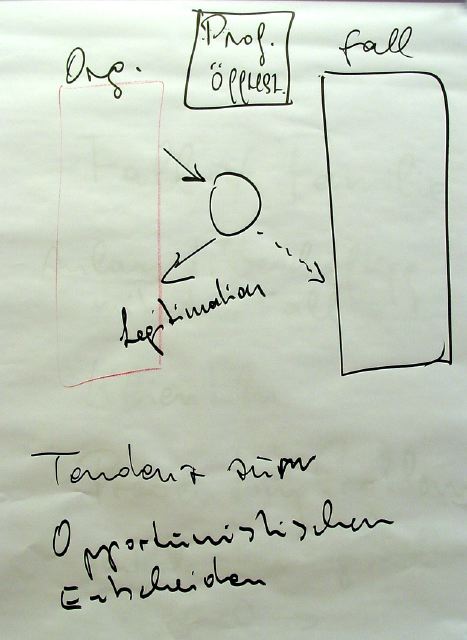 Org.
Prof.
Öfftest.
Fall
Legitimation
Tendenz zum
Opportunistischen
Entscheiden